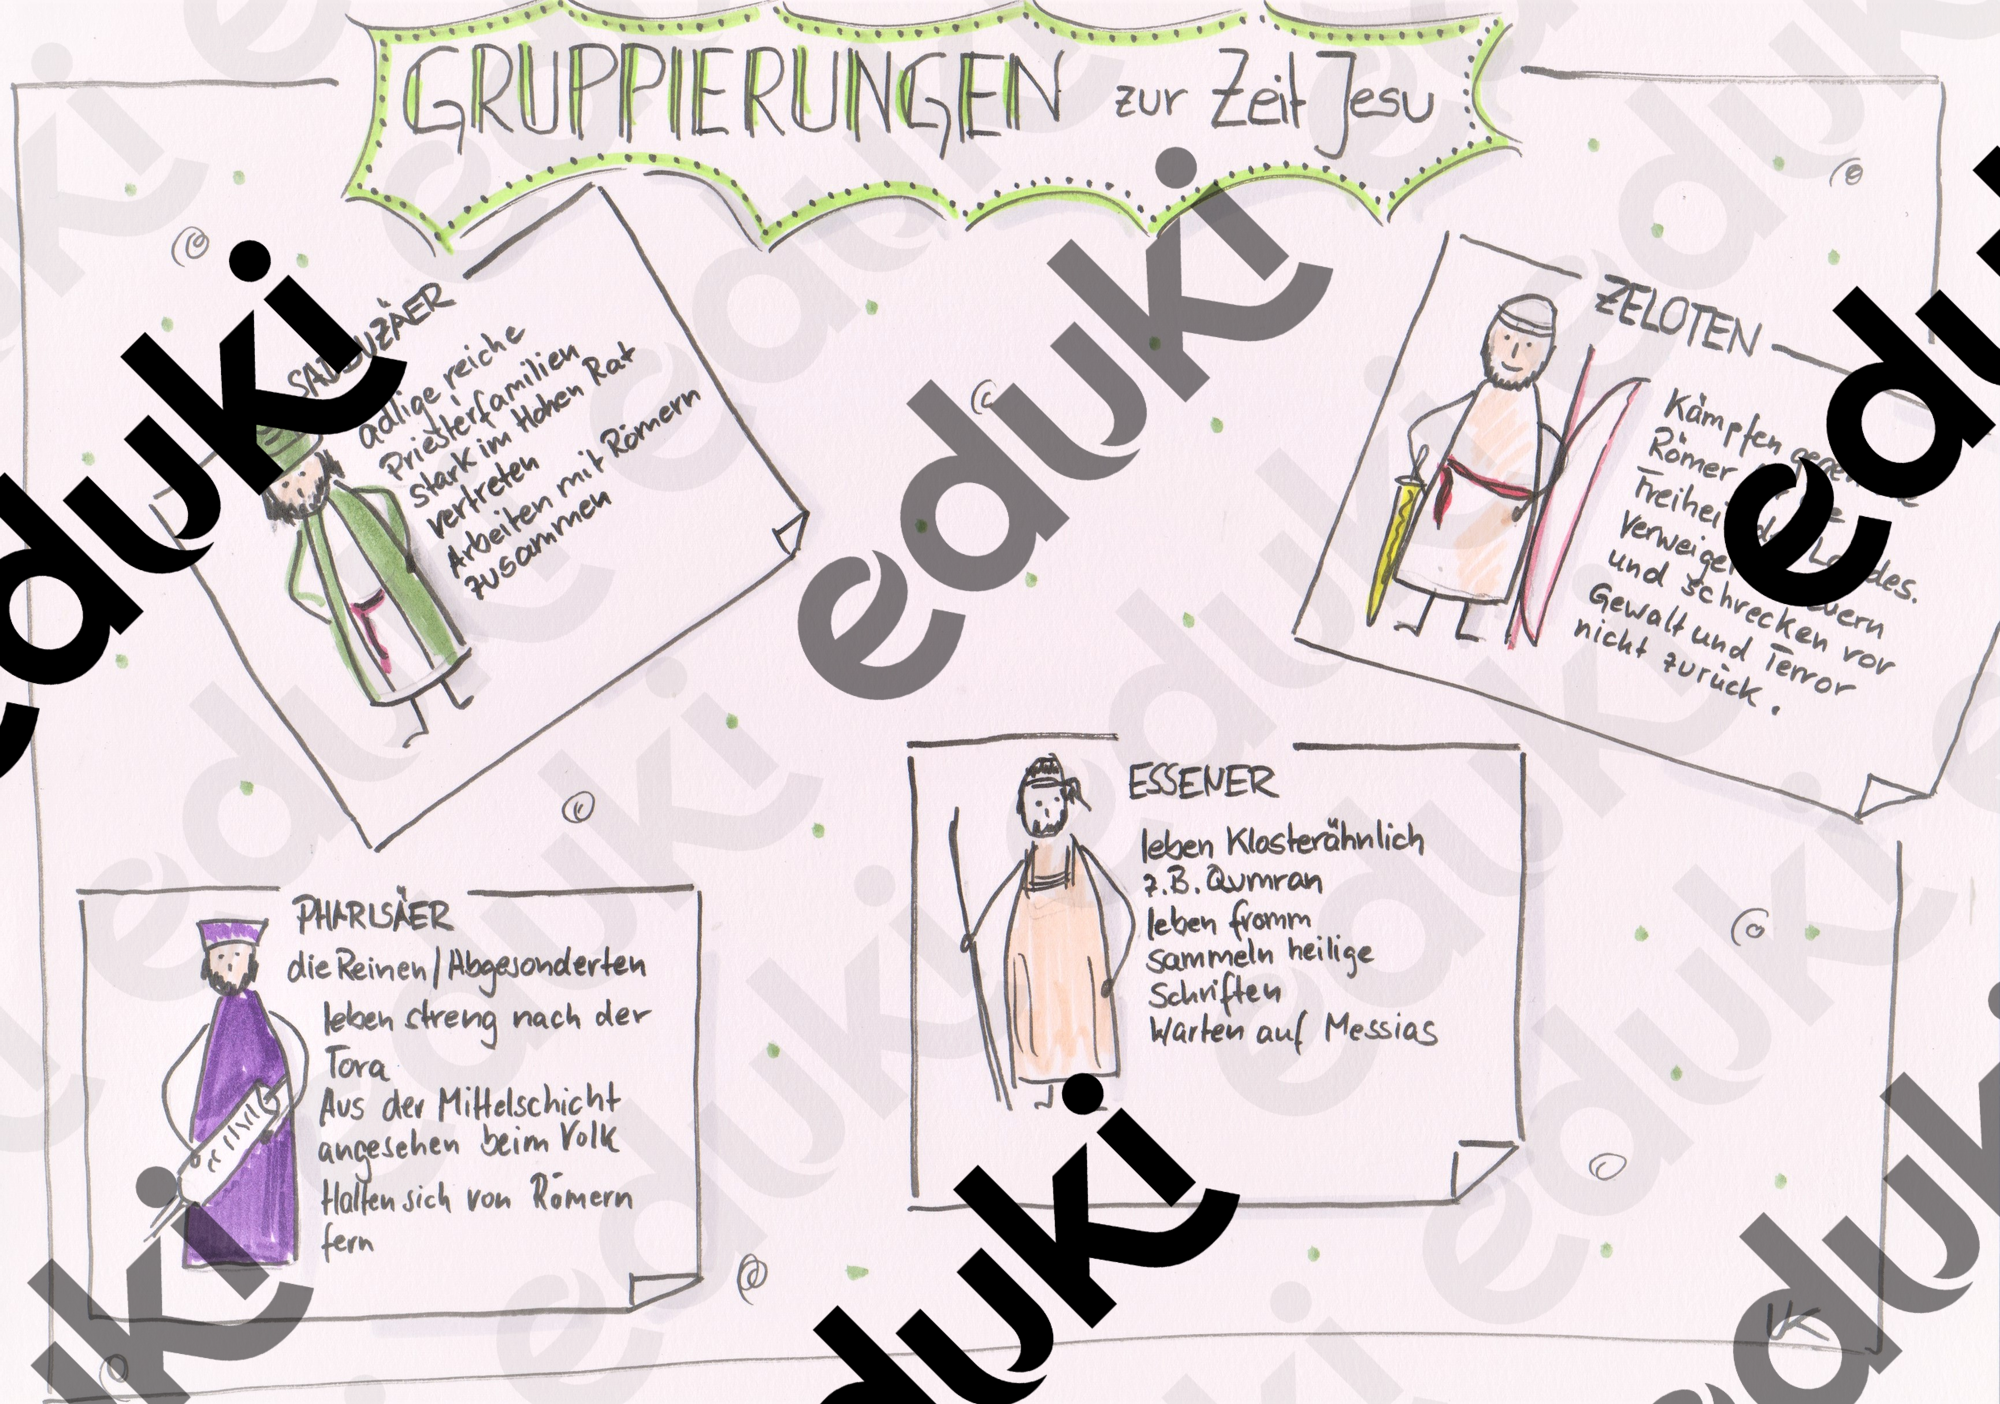 GRUPPIERUNGEN zur Zeit Jesu
SADDUZÄER
adlige, reiche
Priesterfamilien
stark im Hohen Rat
vertreten
Arbeiten mit Römern
zusammen
ZELOTEN
Kämpfen gegen
Römer
Freiheit des Landes.
Verweigern Steuern
und schrecken vor
Gewalt und Terror
nicht zurück.
PHARISÄER
die Reinen/Abgesonderten
leben streng nach der
Tora
Aus der Mittelschicht
angesehen beim Volk
Halten sich von Römern
fern
ESSENER
leben Klosterähnlich
z.B. Qumran
leben fromm
sammeln heilige
Schriften
Warten auf Messias
UK
eduki
eduki
eduki
eduki
eduki
eduki